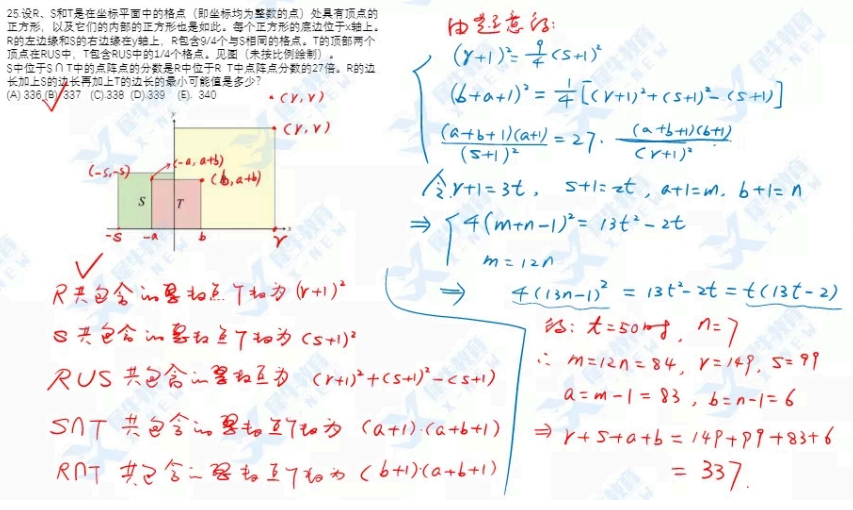 25.设R、S和T是在坐标平面中的格点（即坐标均为整数的点）处具有顶点的
正方形，以及它们的内部的正方形也是如此。每个正方形的底边位于x轴上。
R的左边缘和S的右边缘在y轴上，R包含9/4个与S相同的格点。T的顶部两个
顶点在RUS中，T包含RUS中的1/4个格点。见图（未按比例绘制）。
S中位于S∩T中的点阵点的分数是R中位于R T中点阵点分数的27倍。R的边
长加上S的边长再加上T的边长的最小可能值是多少？
(A) 336 (B) 337 (C).338 (D).339 (E). 340
(r, r)
(r, r)
y
(-a, a+b)
(-s,-s)
(b, a+b)
S
T
x
-s
-a
b
r
R共包含的整数点个数为 (r+1)²
S共包含的整数点个数为 (s+1)²
RUS 共包含的整数点为 (r+1)²+(s+1)²-(s+1)
S∩T 共包含的整数点个数为 (a+1)·(a+b+1)
R∩T 共包含的整数点个数为 (b+1)(a+b+1)
由题意得:
(r+1)²= 9/4 (s+1)²
(b+a+1)² = 1/4 [(r+1)²+(s+1)²-(s+1)]
(a+b+1)(a+1)/(s+1)² = 27· (a+b+1)(b+1)/(r+1)²
令 r+1=3t, s+1=2t, a+1=m. b+1=n
⇒ 4(m+n-1)²= 13t²-2t
m=12n
⇒ 4(13n-1)² = 13t²-2t=t(13t-2)
得: t=50时, n=7
∴ m=12n=84, r=149, s=99
a=m-1=83, b=n-1=6
⇒ r+s+a+b=149+99+83+6
= 337.
犀牛教育
X-NEW